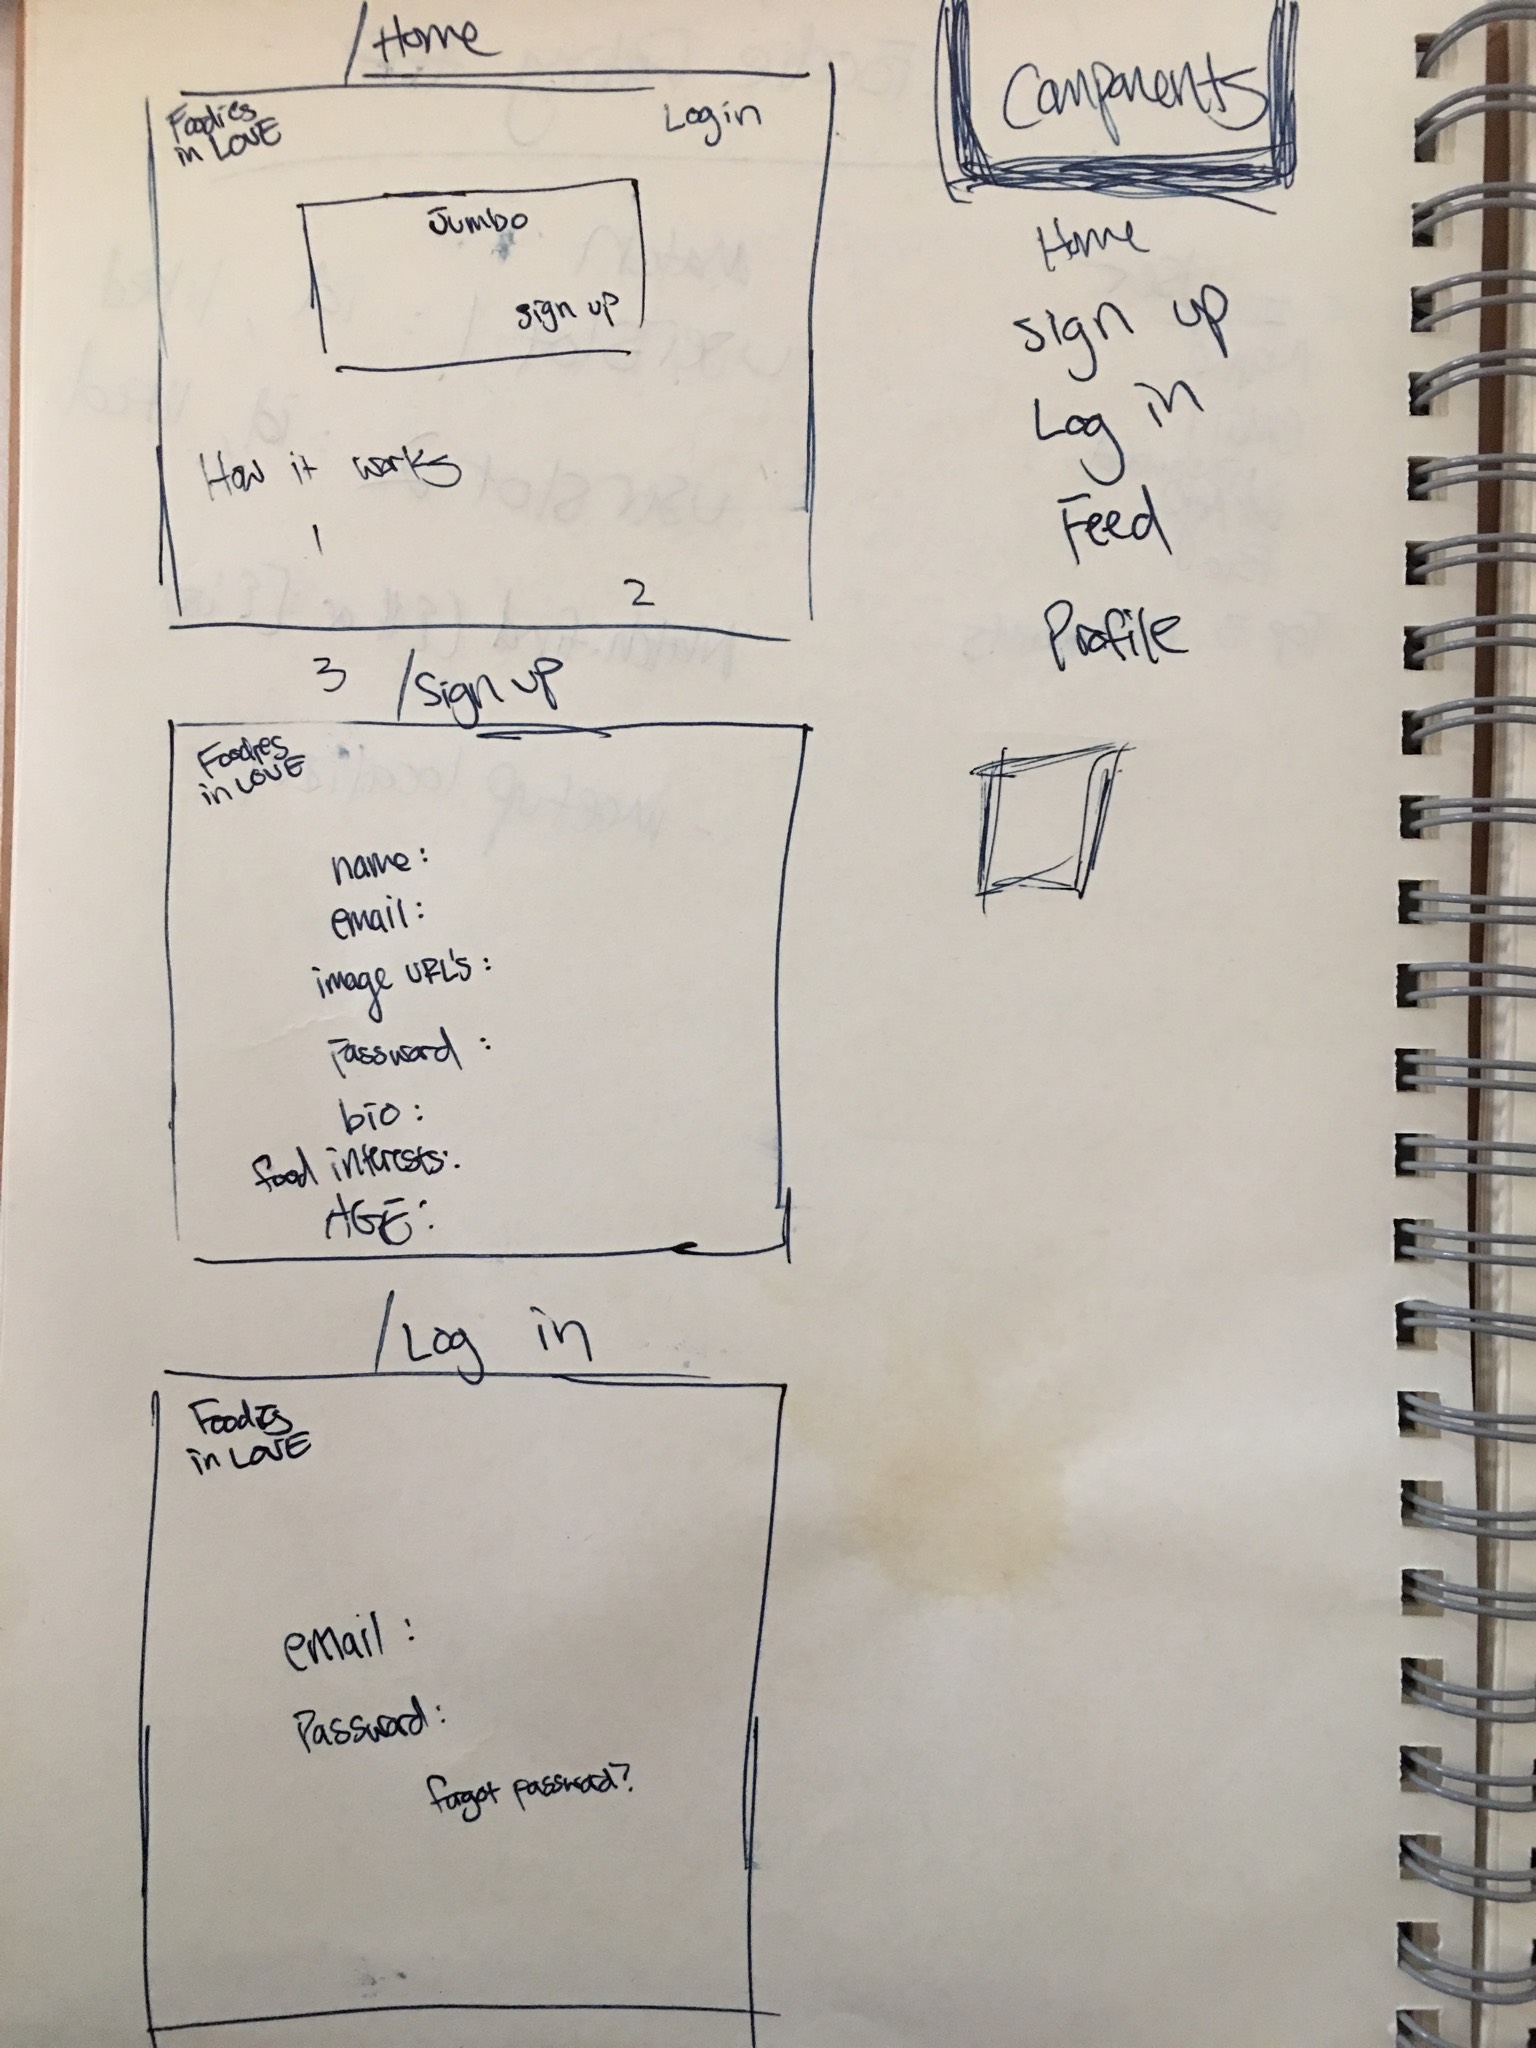 /Home
Foodies
in LOVE
Login
Jumbo
sign up
How it works
1
2
3
/Sign up
Foodies
in LOVE
name:
email:
image URL's:
Password:
bio:
food interests:
AGE:
/Log in
Foodies
in LOVE
email:
Password:
forgot password?
Components
Home
sign up
Log in
Feed
Profile